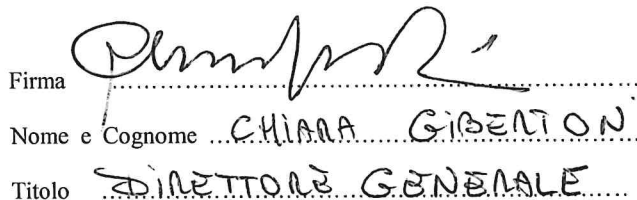 Firma
Nome e Cognome CHIARA GIBERTONI
Titolo DIRETTORE GENERALE